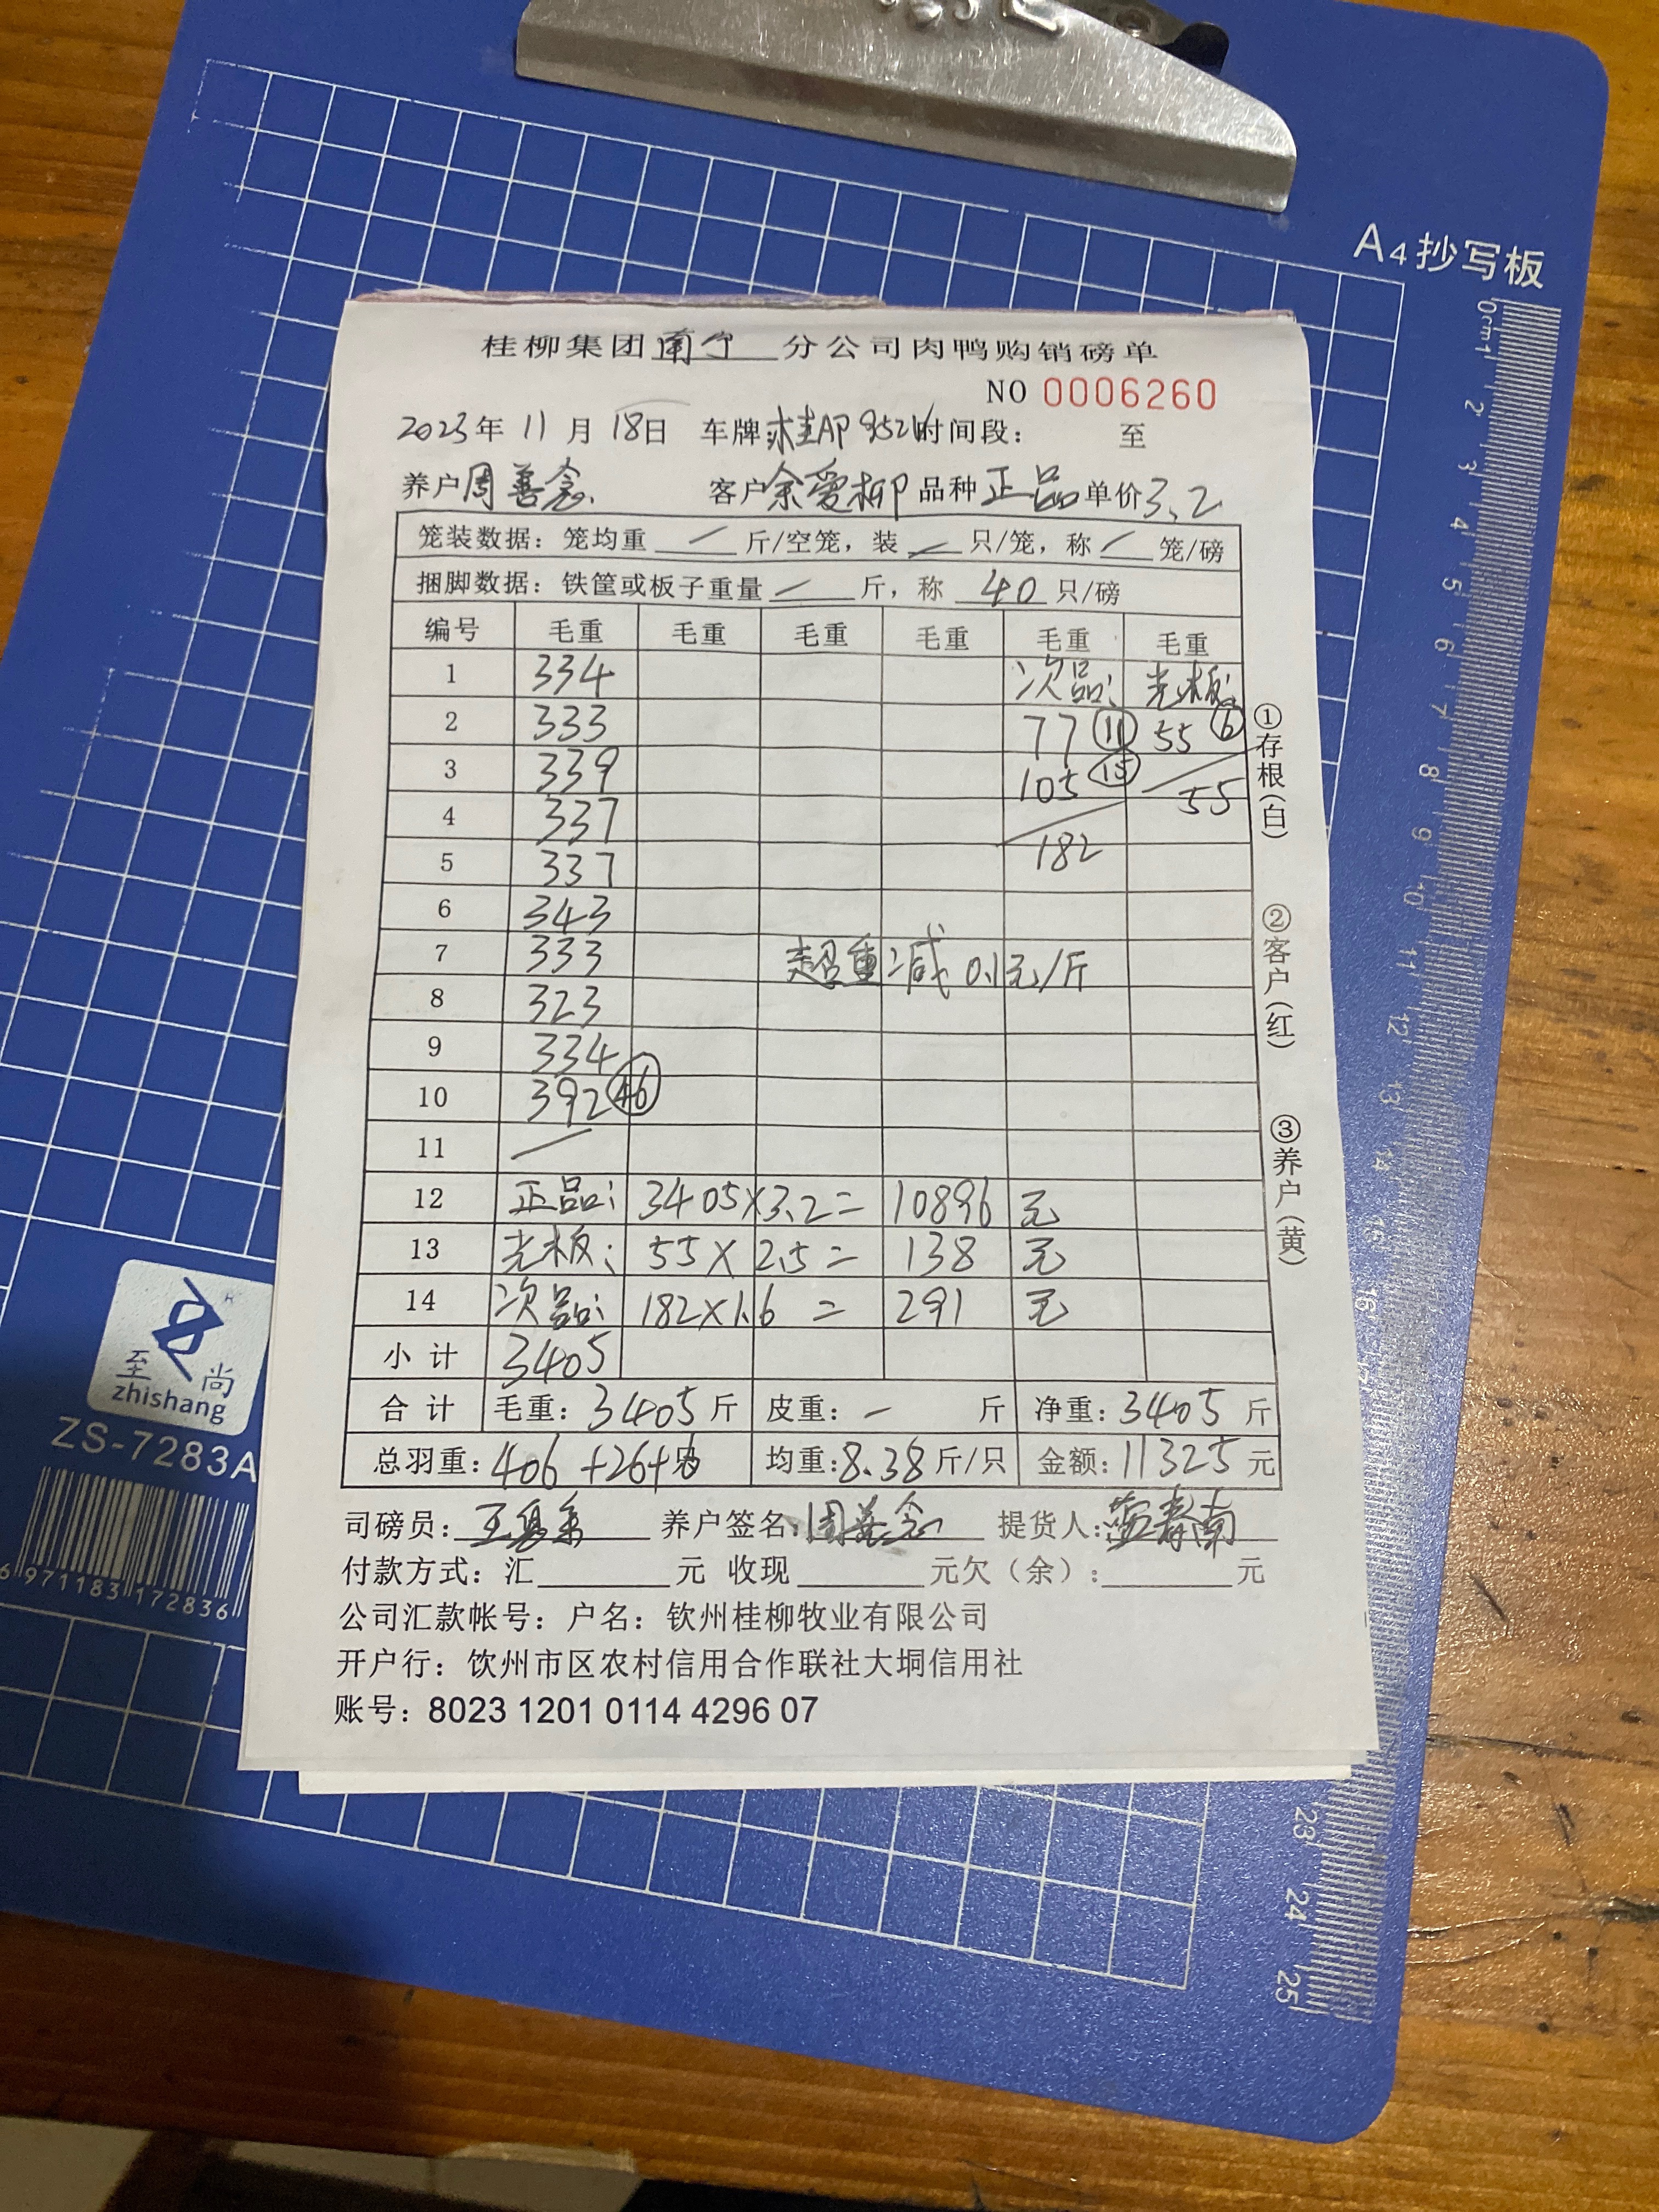 A4抄写板
0cm1 2 3 4 5 6 7 8 9 10 11 12 13 14
23 24 25
桂柳集团南宁分公司肉鸭购销磅单
NO 0006260
2023年11月18日 车牌桂AP952 时间段: 至
养户周善念 客户余爱柳 品种正品 单价3.2
笼装数据: 笼均重 / 斤/空笼, 装 / 只/笼, 称 / 笼/磅
捆脚数据: 铁筐或板子重量 / 斤, 称 40 只/磅
编号 毛重 毛重 毛重 毛重 毛重 毛重
1 334 次品: 光板:
2 333 77 ⑪ 55 ⑥
3 339 105 ⑮ 55
4 337
5 337 182
6 343
7 333 超重减0.1元/斤
8 323
9 334
10 392 ㊻
11 /
12 正品: 3405×3.2= 10896 元
13 光板: 55×2.5= 138 元
14 次品: 182×1.6 = 291 元
小计 3405
合计 毛重: 3405 斤 皮重: - 斤 净重: 3405 斤
总羽重: 406+26+6 均重: 8.38 斤/只 金额: 11325 元
司磅员: 养户签名: 周善念 提货人:
付款方式: 汇 元 收现 元欠(余): 元
公司汇款帐号: 户名: 钦州桂柳牧业有限公司
开户行: 钦州市区农村信用合作联社大垌信用社
账号: 8023 1201 0114 4296 07
①存根(白)
②客户(红)
③养户(黄)
至尚
zhishang
ZS-7283A
6 971183 172836